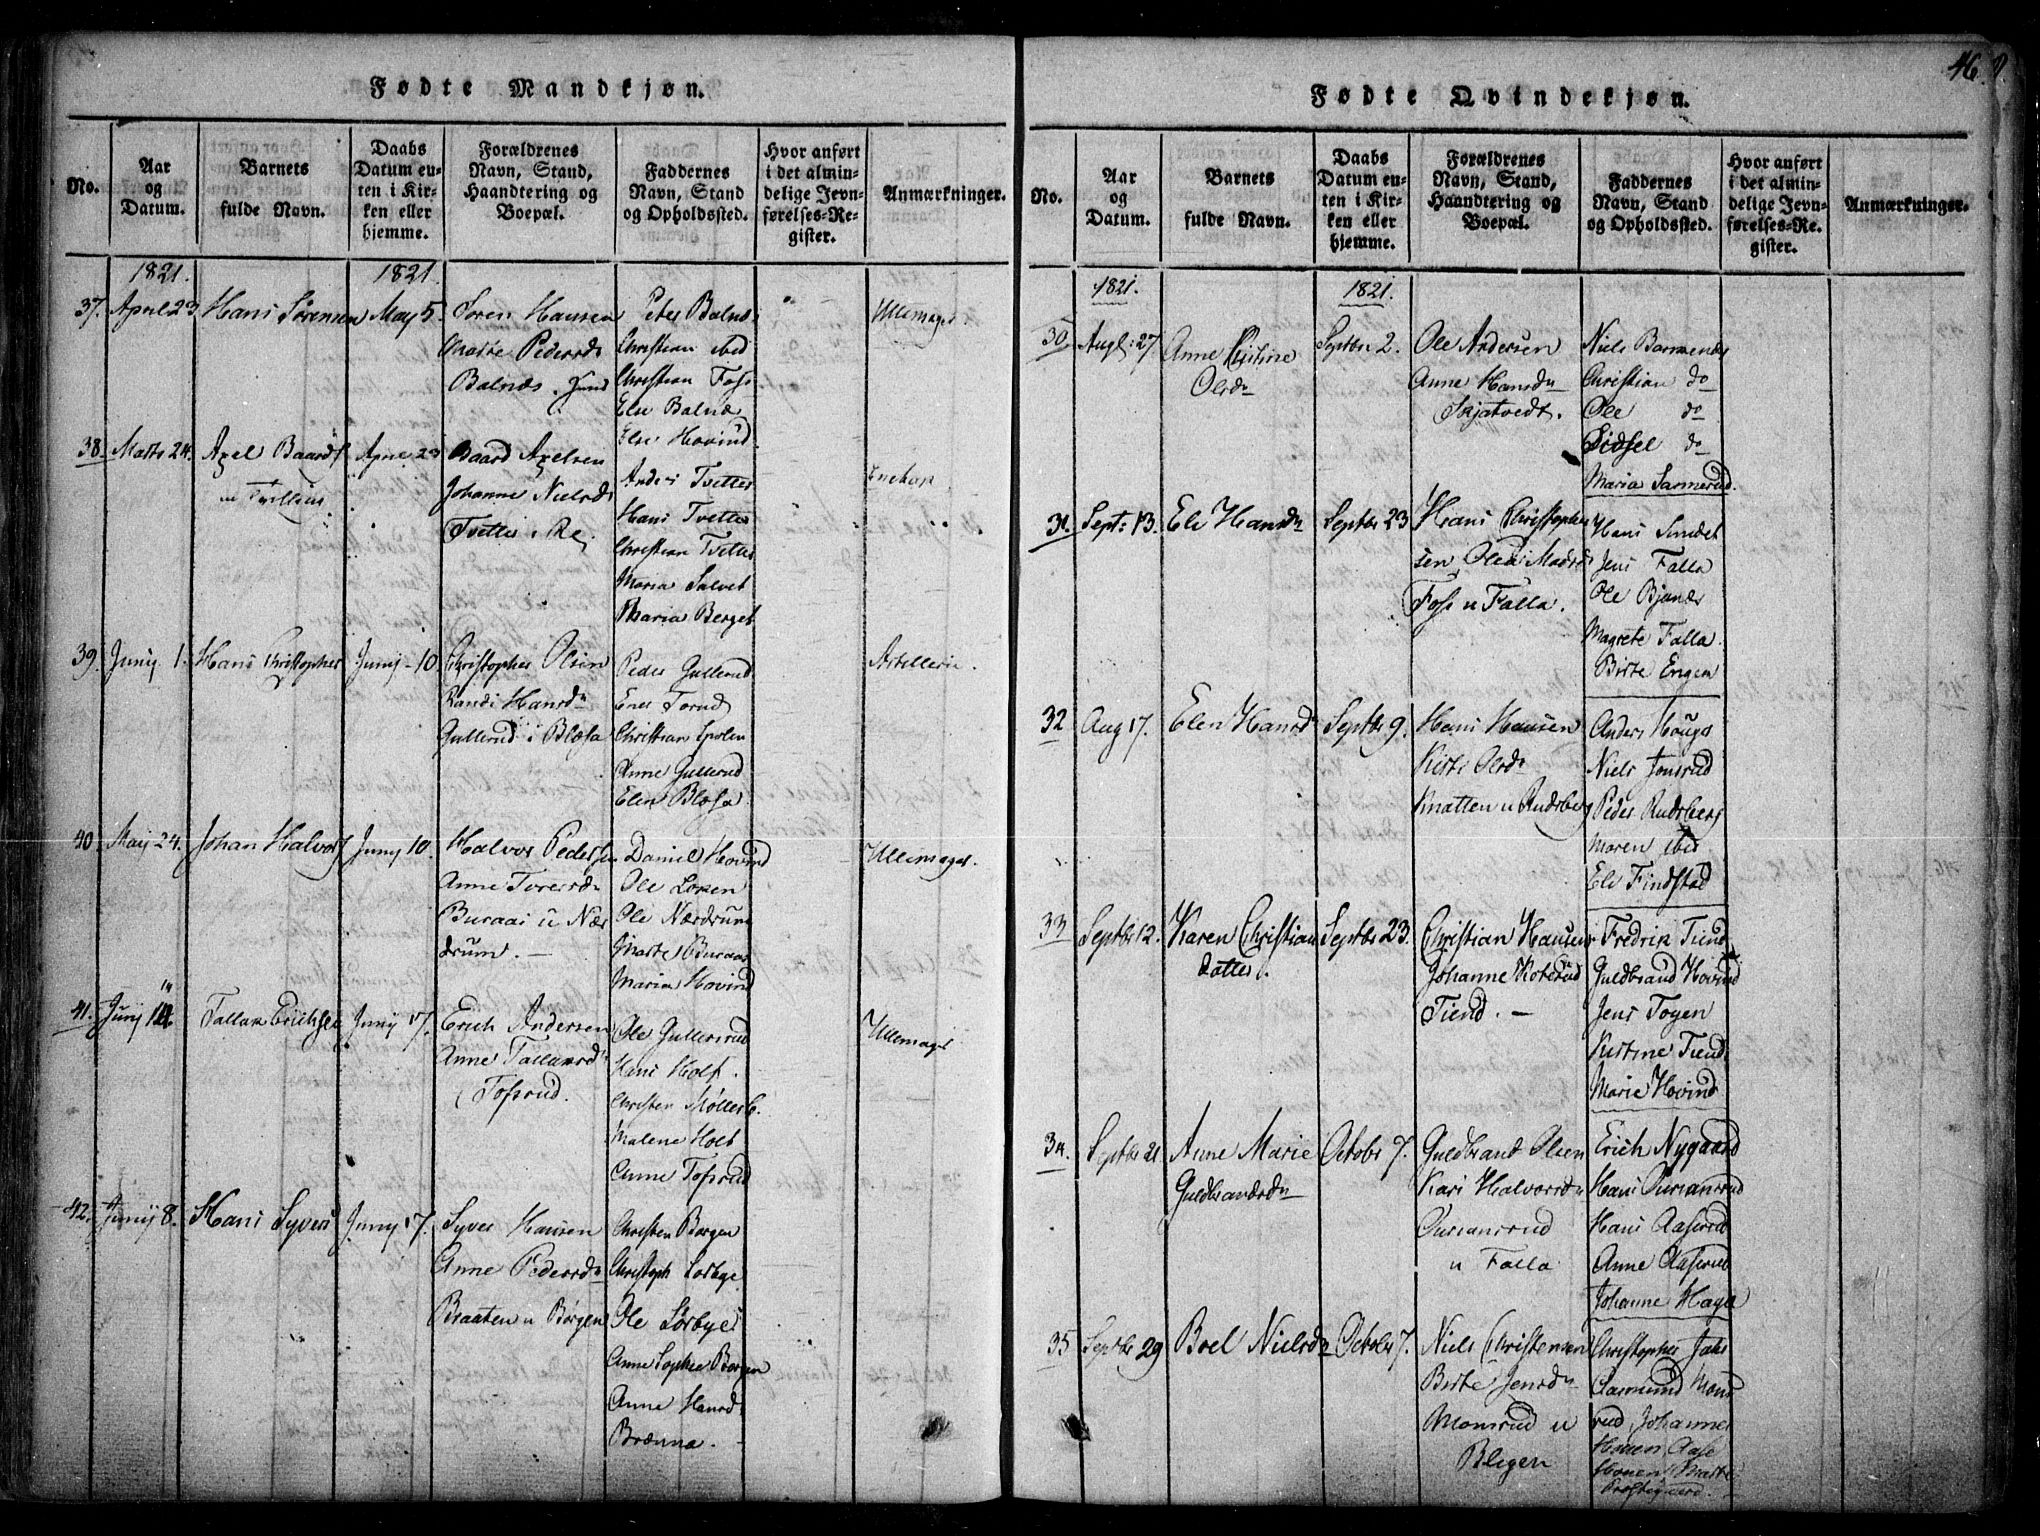 46.
Fødte Mandkjøn.
No.
Aar
og
Datum.
Barnets
fulde Navn.
Daabs
Datum en-
ten i Kir-
ken eller
hjemme.
Forældrenes
Navn, Stand,
Haandtering og
Boepæl.
Faddernes
Navn, Stand
og Opholdssted.
Hvor anført
i det almin-
delige Jevn-
førelses-Re-
gister.
Anmærkninger.
1821.
1821.
37. April 23
Hans Sørensen
May 5.
Søren Hansen
Marte Pedersd
Balnæs
Peter Balnæs
Christian ibid
Christian Foss
Else Balnæs
Else Hovind
Ullemager
38. Marts 24.
Axel Baards
April 23
Baard Axelsen
Johanne Nielsd
Tvetter
Anders Tvetter
Hans Tvetter
Christian Tvetter
Maria Salvet
Maria Berget
39. Junij 1.
Hans Christophers
Junij 10
Christopher Olsen
Randi Hansdn
Gullerud i Blæsa
Peder Gullerud
Ener Torud
Christian
Anne Gullerud
Elen Blæsa
Artillerie.
40 May 24.
Johan Halvors
Juny 10.
Halvor Pedersen
Anne Toresdn
Buraas u Nær
drum. –
Daniel Hovind
Ole Loken
Ole Nærdrum
Marte Buraas
Maria Hovind
Ullemager
41. Junij 14
Tallak Erichsen
Junij 17.
Erich Andersen
Anne Tallaksdn
Tofsrud.
Ole Gullersrud
Hans Holt.
Christen Møllerb.
Malene Holt
Anne Tofsrud
Ullemager
42. Junij 8.
Hans Syvers
Juny 17.
Syver Hansen
Anne Pedersdn
Braaten u Børgen
Christen Borgen
Christoph Sorbye
Ole Sørbye
Anne Sophie Borgen
Anne Hansd
Brænna.
Fødte Qvindekjøn.
No.
Aar
og
Datum.
Barnets
fulde Navn.
Daabs
Datum en-
ten i Kir-
ken eller
hjemme.
Forældrenes
Navn, Stand,
Haandtering og
Boepæl.
Faddernes
Navn, Stand
og Opholdssted.
Hvor anført
i det almin-
delige Jevn-
førelses-Re-
gister.
Anmærkninger.
1821.
1821.
30. Augl: 27
Anne
Olsdn
Septbr 2.
Ole Andersen
Anne Hansdn
Skjatvedt.
Niels
Christian do
Ole do
Sidsel do
Maria Sannerud.
31. Sept: 13.
Eli Hansdn
Septbr 23
Hans Christopher
sen, Olea Madsd
Foss u Falla.
Hans
Jens Falla
Ole
Magrete Falla
Birte Engen
32 Aug 17.
Elen Hansd
Septbr 9.
Hans Hansen
Kirsti Olsdn
Knatten u Rudsberg
Anders Haugs
Niels Jonsrud
Peder Rudsberg
Maren ibid
Eli Findstad
33 Septbr 12.
Karen Christian
datter.
Septbr 23.
Christian Hansen
Johanne
Tiend. –
Fredrik Tiend
Guldbrand Hovind
Jens Toyen
Kirstine Tiend
Marie Hovind
34. Septbr 21
Anne Marie
Guldbrandsdn
Octobr 7.
Guldbrand Olsen
Kari Halvorsdn
Ouriansrud
u Falla
Erich Nygaard
Hans Ouriansrud
Hans Aasrud
Anne Aasrud
Johanne Haga
35 Septbr 29
Boel Nielsdn
Octobr 7.
Niels Christensen
Berte Jensdn
Monsrud u
Bligen
Christopher
Aasmund Mons
rud Johanne
Houen Aase
Houen Marte
Prestegaard.